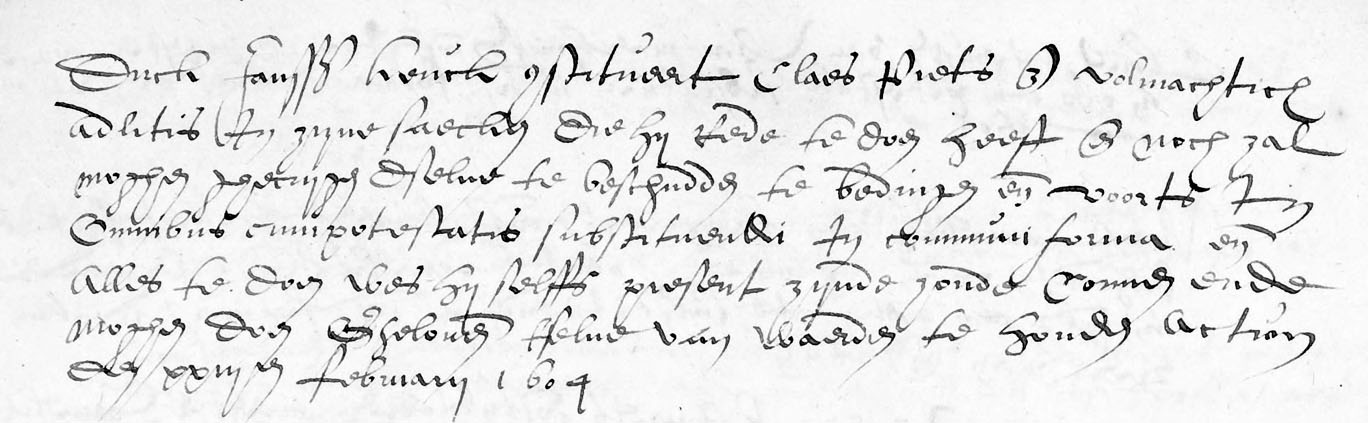 Dirck Janssz kerck 9stitueert Claes Piets zn volmachtich
ad lites In zijne saecken die hij Rede te doen heeft en noch zal
moghen gecrijgen dselve te beschudden te bedingen en voorts In
Omnibus cum potestatis substituendi In communi forma en
Alles te doen wes hij selffs present zijnde zonde Connen ende
moghen doen Gheloven tselve van waerden te houden Actum
den xxiijen februarij 1604